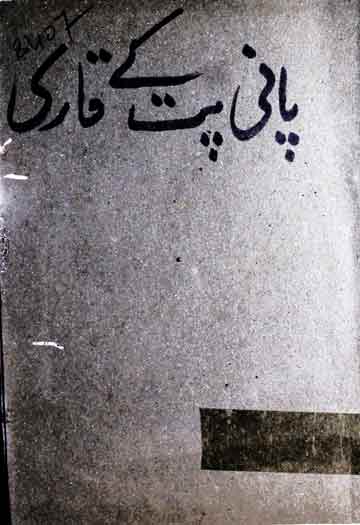 پانی پت کے قاری